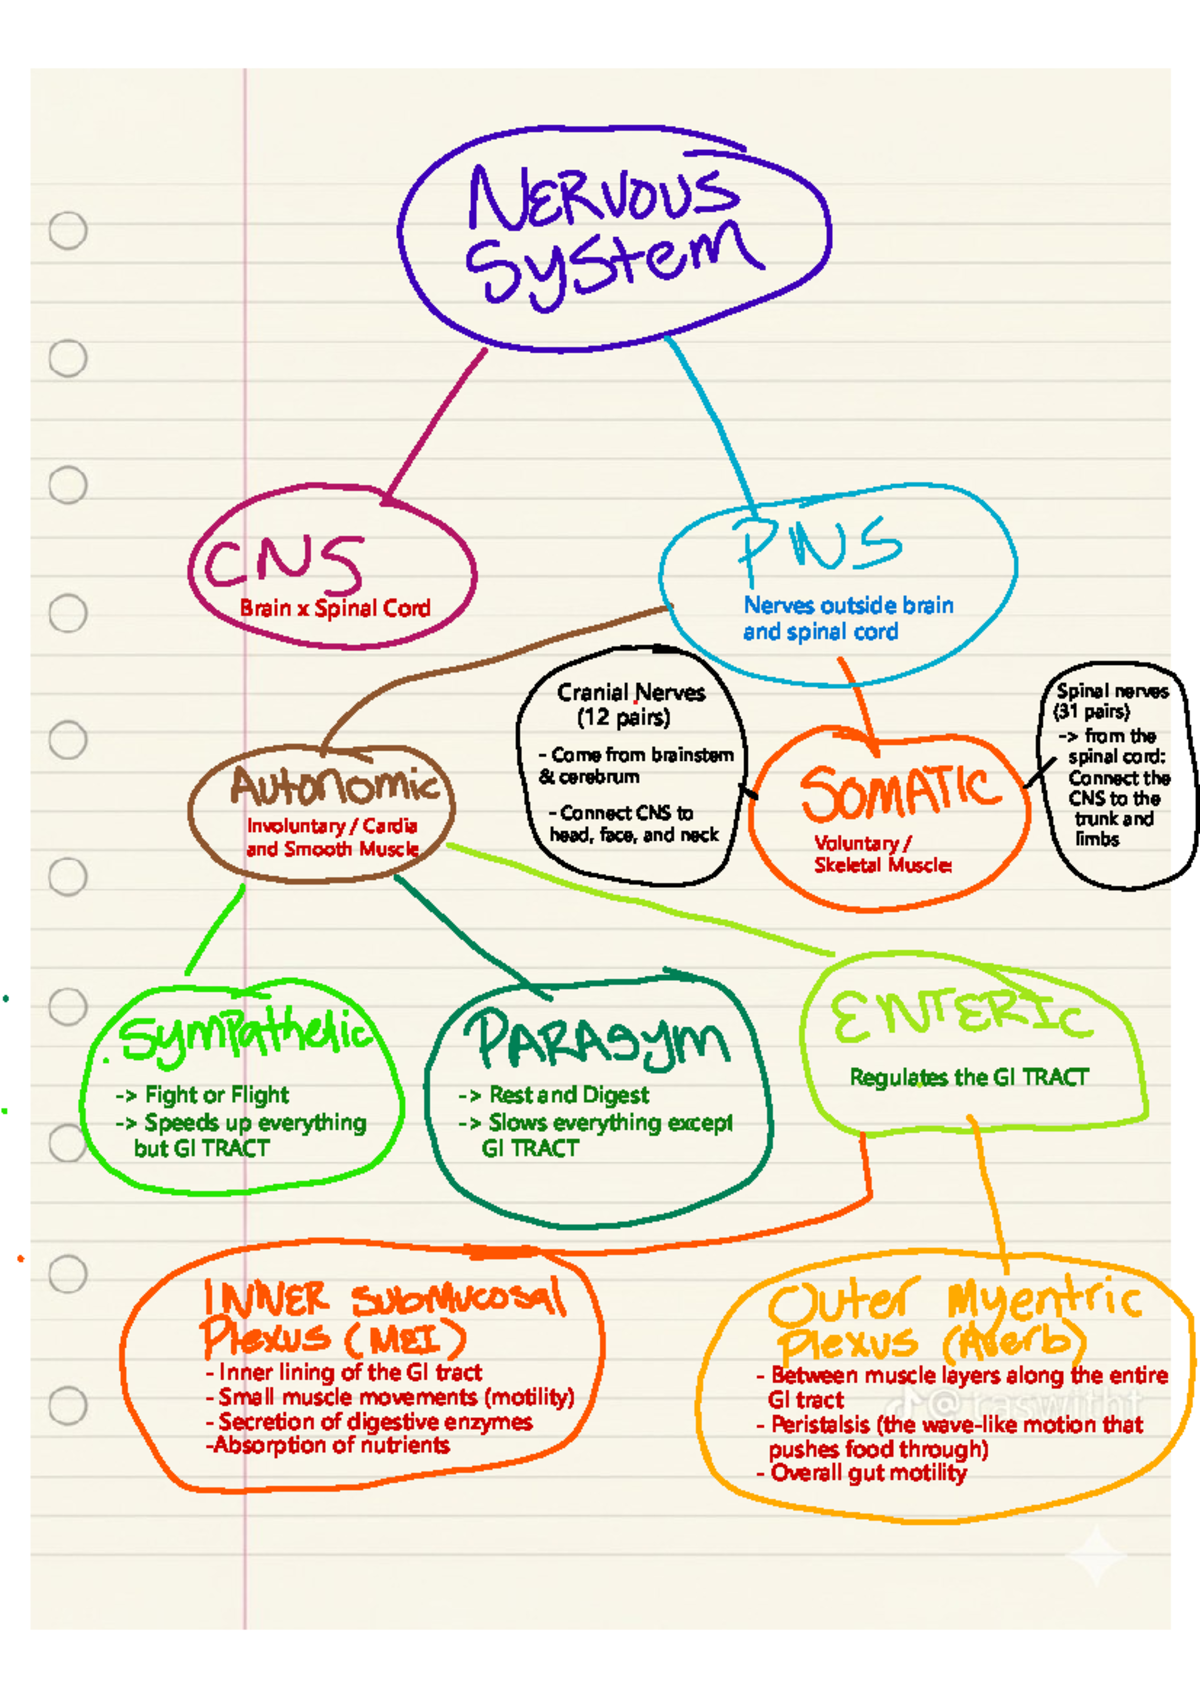 NERVOUS
System
CNS
Brain x Spinal Cord
PNS
Nerves outside brain
and spinal cord
Autonomic
Involuntary / Cardia
and Smooth Muscle
Cranial Nerves
(12 pairs)
- Come from brainstem
& cerebrum
- Connect CNS to
head, face, and neck
SOMATIC
Voluntary /
Skeletal Muscles
Spinal nerves
(31 pairs)
-> from the
spinal cord:
Connect the
CNS to the
trunk and
limbs
Sympathetic
-> Fight or Flight
-> Speeds up everything
but GI TRACT
PARAsym
-> Rest and Digest
-> Slows everything except
GI TRACT
ENTERIC
Regulates the GI TRACT
INNER SubMucosal
Plexus (MEI)
- Inner lining of the GI tract
- Small muscle movements (motility)
- Secretion of digestive enzymes
-Absorption of nutrients
Outer Myentric
Plexus (Averb)
- Between muscle layers along the entire
GI tract
- Peristalsis (the wave-like motion that
pushes food through)
- Overall gut motility